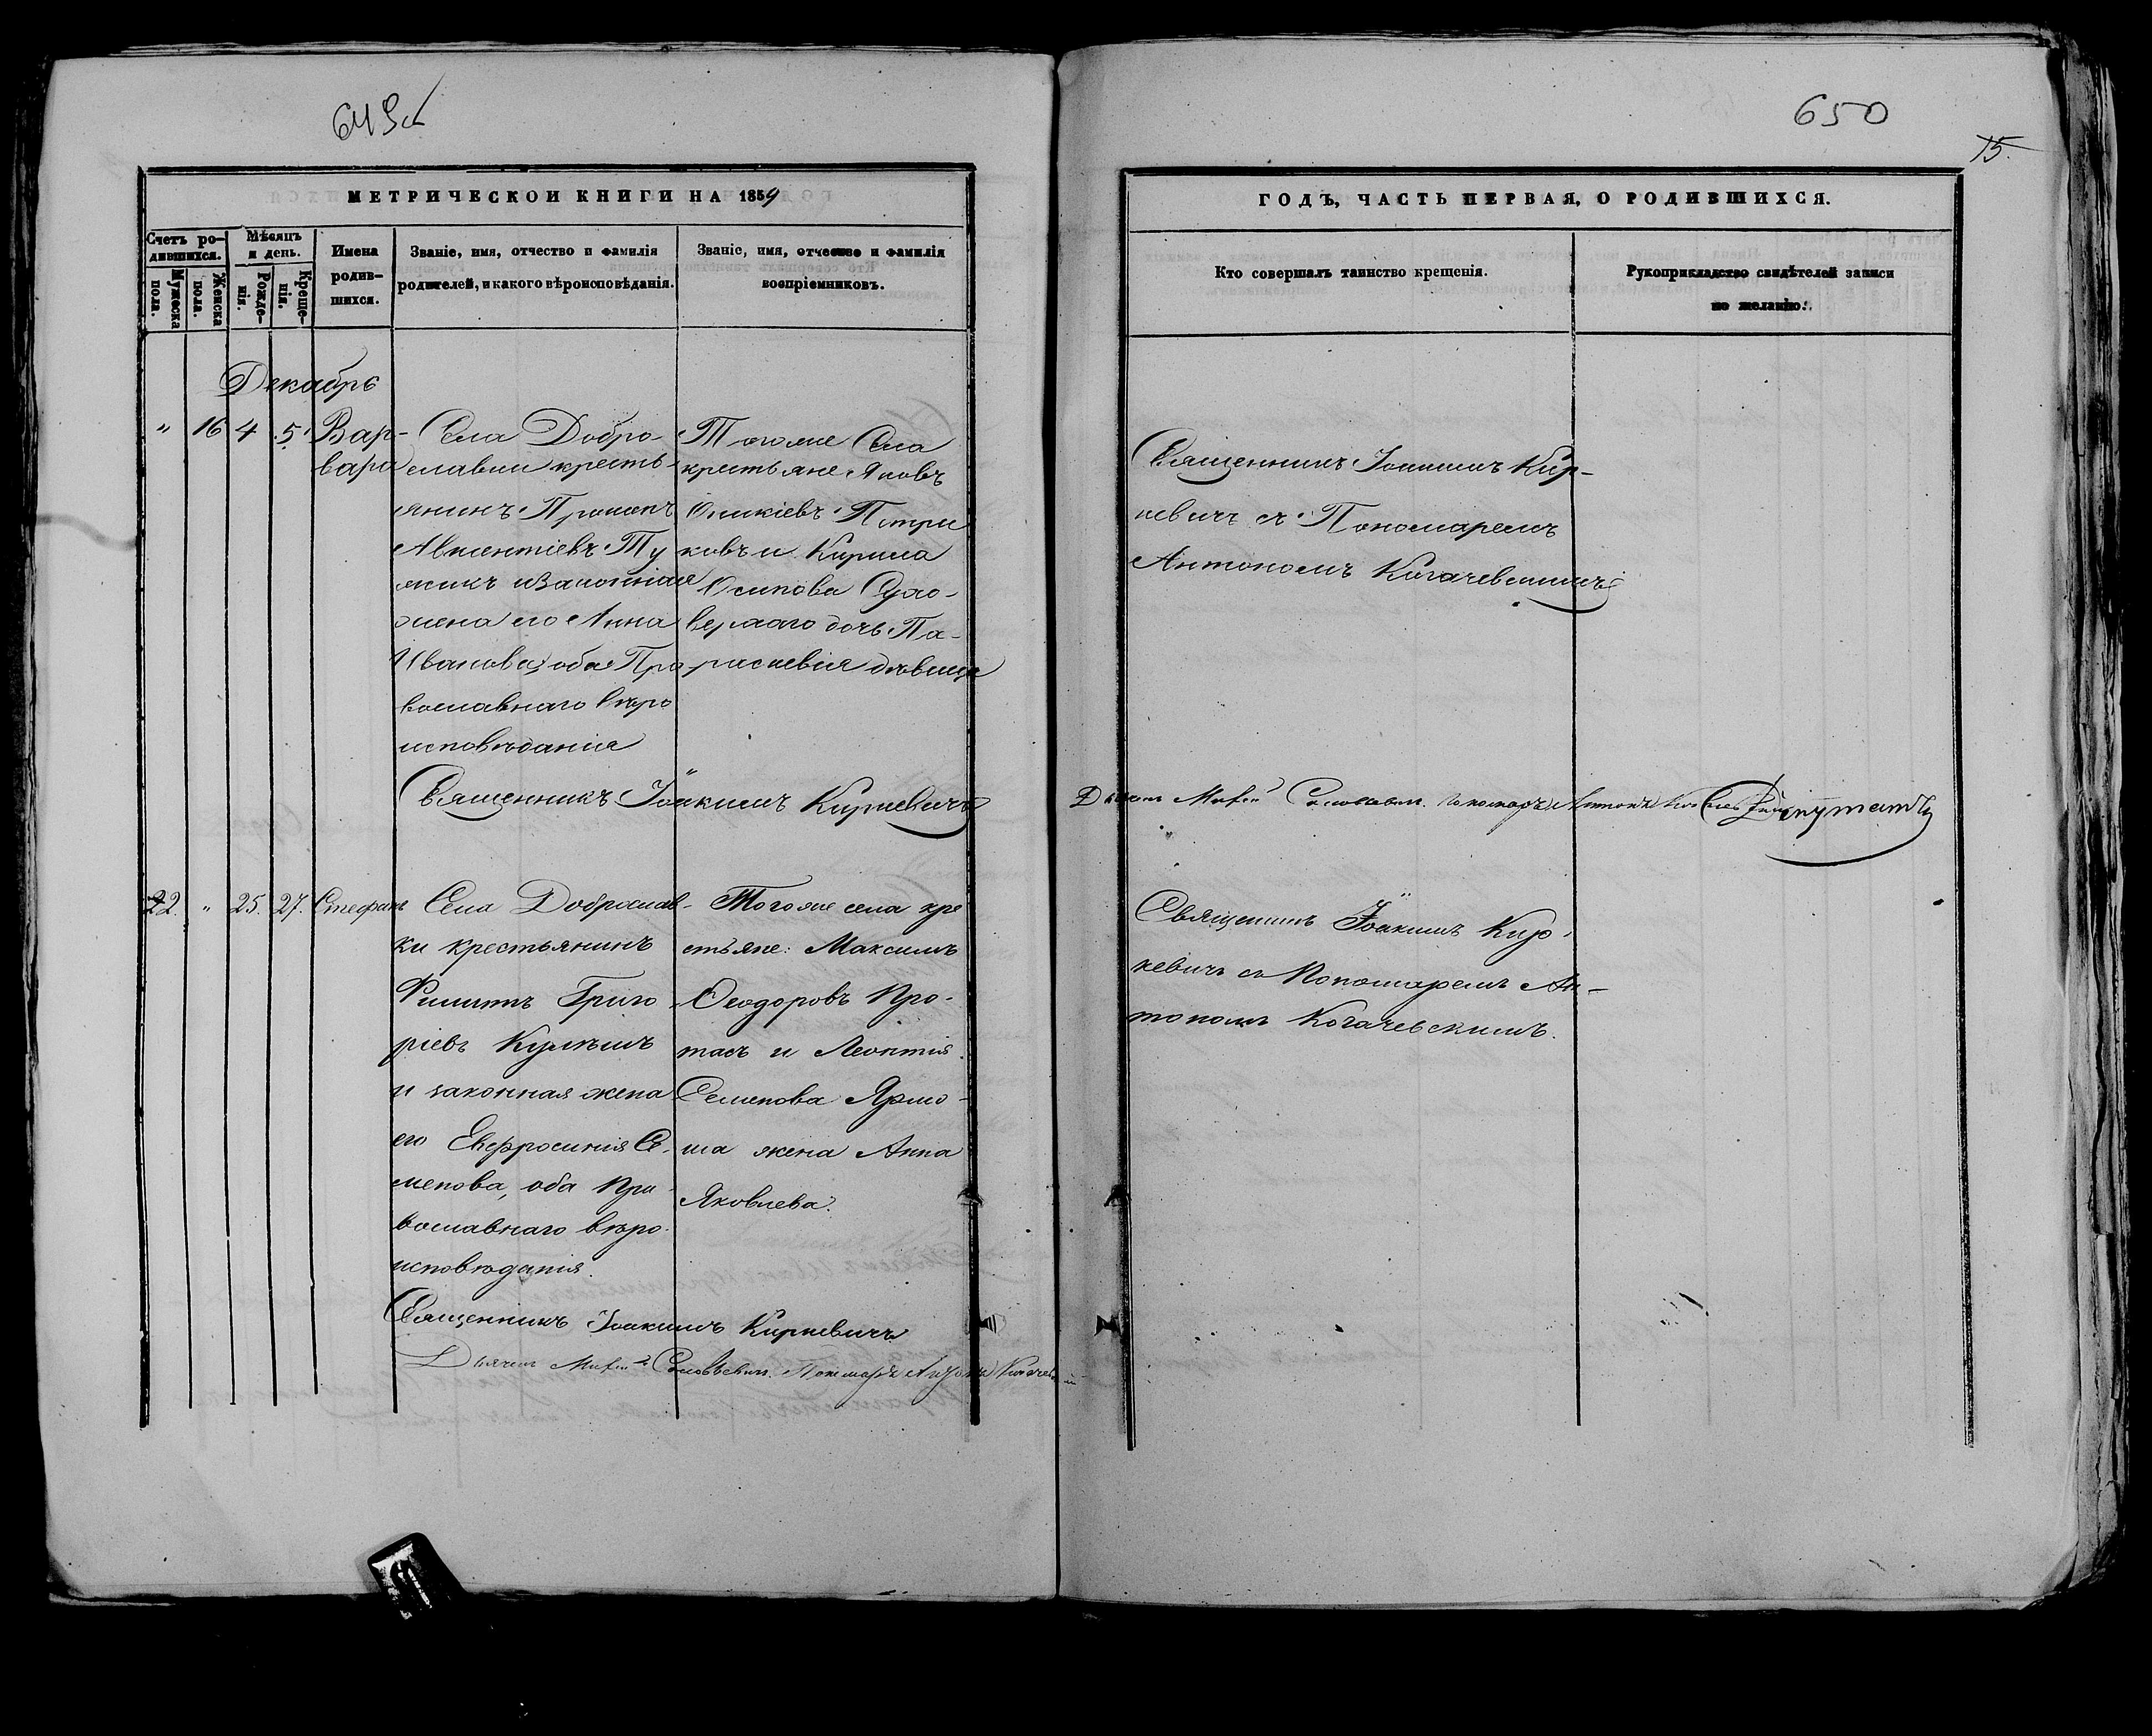 649об
МЕТРИЧЕСКОИ КНИГИ НА 1859
Счетъ ро-
дившихся.
Мужеска
пола.
Женска
пола.
Мѣсяцъ
и день.
Рожде-
нія.
Креще-
нія.
Имена
родив-
шихся.
Званіе, имя, отчество и фамилія
родителей, и какого вѣроисповѣданія.
Званіе, имя, отчество и фамилія
воспріемниковъ.
Декабрь
" 16 4 5
Вар-
вара
Села Добро-
славки кресть-
янинъ Прокопъ
Авксентіевъ Ту
жикъ и законная
жена его Анна
Иванова, оба Пра
вославнаго вѣро
исповѣданія
Тогоже Села
крестьяне Яковъ
Оникіевъ Петри
ковъ и Кирила
Осипова Сухо-
верхаго дочь Па-
раскевія дѣвица
Священникъ Іоакимъ Киркевичъ
22. " 25. 27. Стефанъ
Села Доброслав-
ки крестьянинъ
Филиппъ Григо
ріевъ Кулѣшъ
и законная жена
его Евфросинія Се-
менова, оба Пра-
вославнаго вѣро-
исповѣданія.
Тогоже села кре
стьяне: Максимъ
Ѳеодоровъ Про-
тасъ и Леонтія
Семенова Ярмо-
ша жена Анна
Яковлева.
Священникъ Іоакимъ Киркевичъ
Дьячекъ Соловьевичъ. Пономарь Антонъ
650
75.
ГОДЪ, ЧАСТЬ ПЕРВАЯ, О РОДИВШИХСЯ.
Кто совершалъ таинство крещенія.
Рукоприкладство свидѣтелей записи
по желанію.
Священникъ Іоакимъ Кир-
кевичъ съ Пономаремъ
Антономъ Когачевскимъ
Дьячекъ Пономарь Антонъ Депутатъ
Священникъ Іоакимъ Кир-
кевичъ съ Пономаремъ Ан-
тономъ Когачевскимъ.